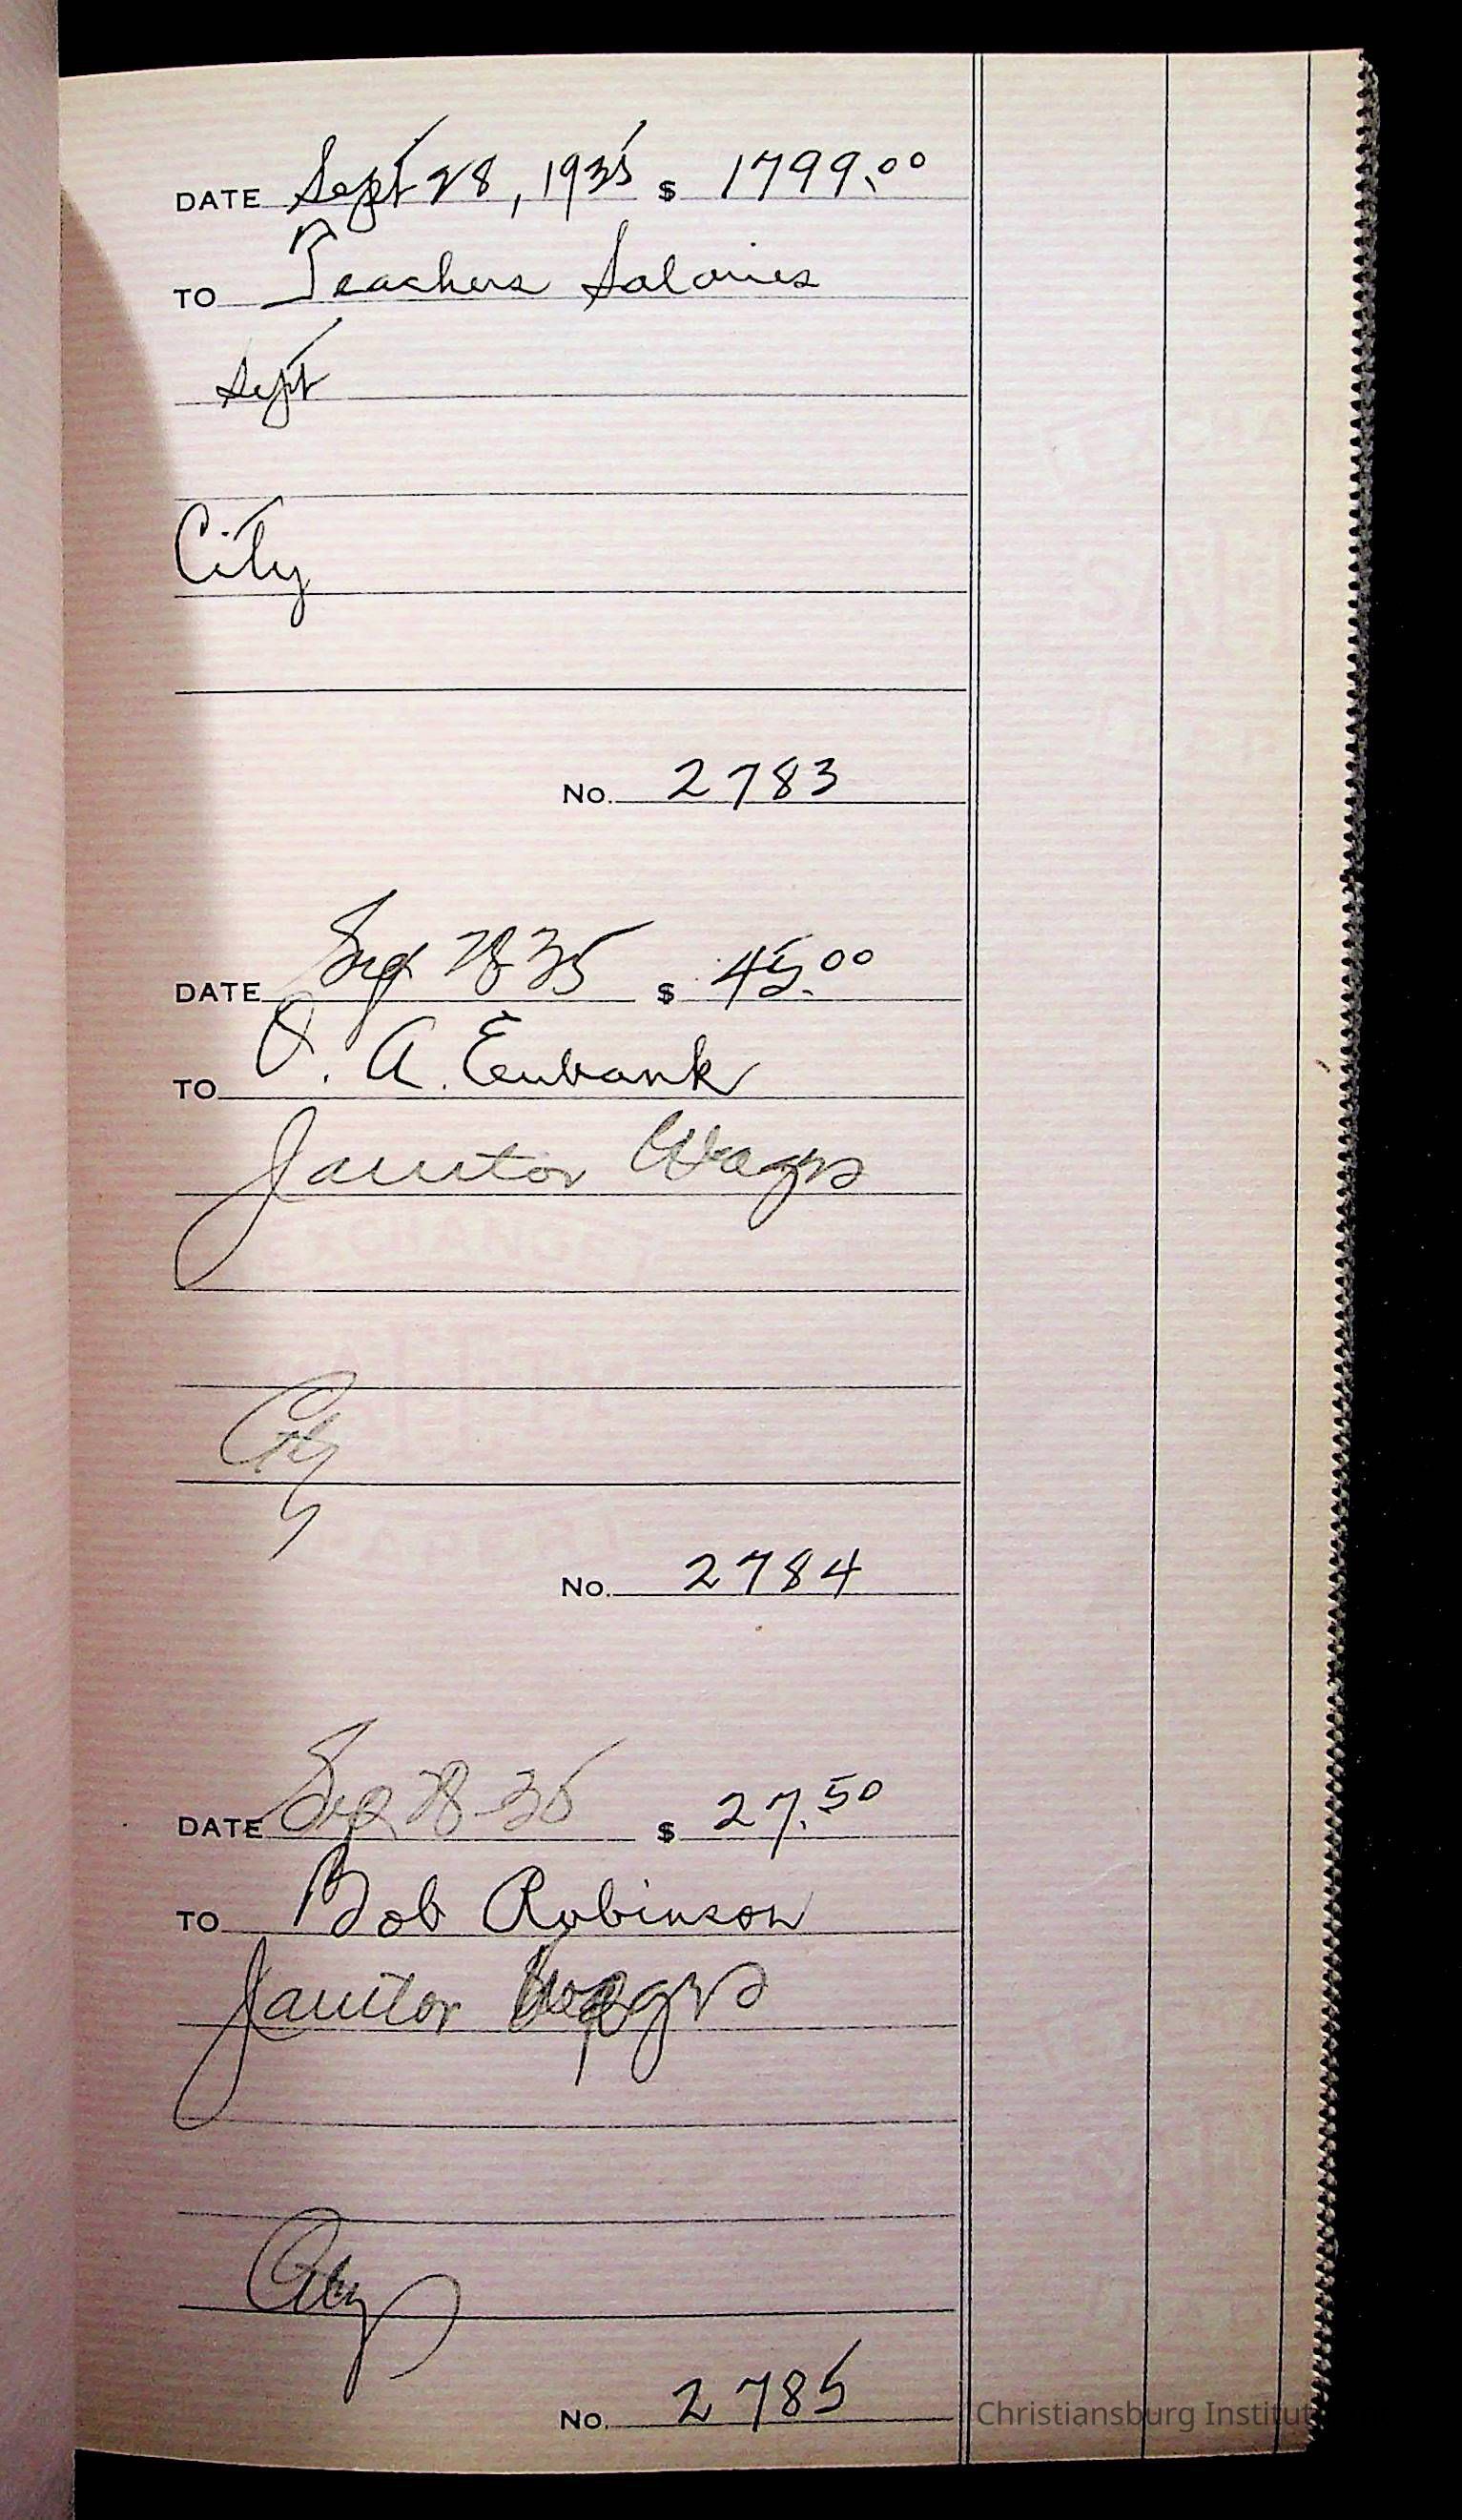 DATE Sept 28, 1935 $ 1799.00
TO Teachers Salaries
Sept
City
No. 2783
DATE Sep 28 35 $ 45.00
TO O. A. Eubank
Janitor Wages
EXCHANGE
City
No. 2784
DATE Sep 28-35 $ 27.50
TO Bob Robinson
Janitor Wages
City
No. 2785
Christiansburg Institut